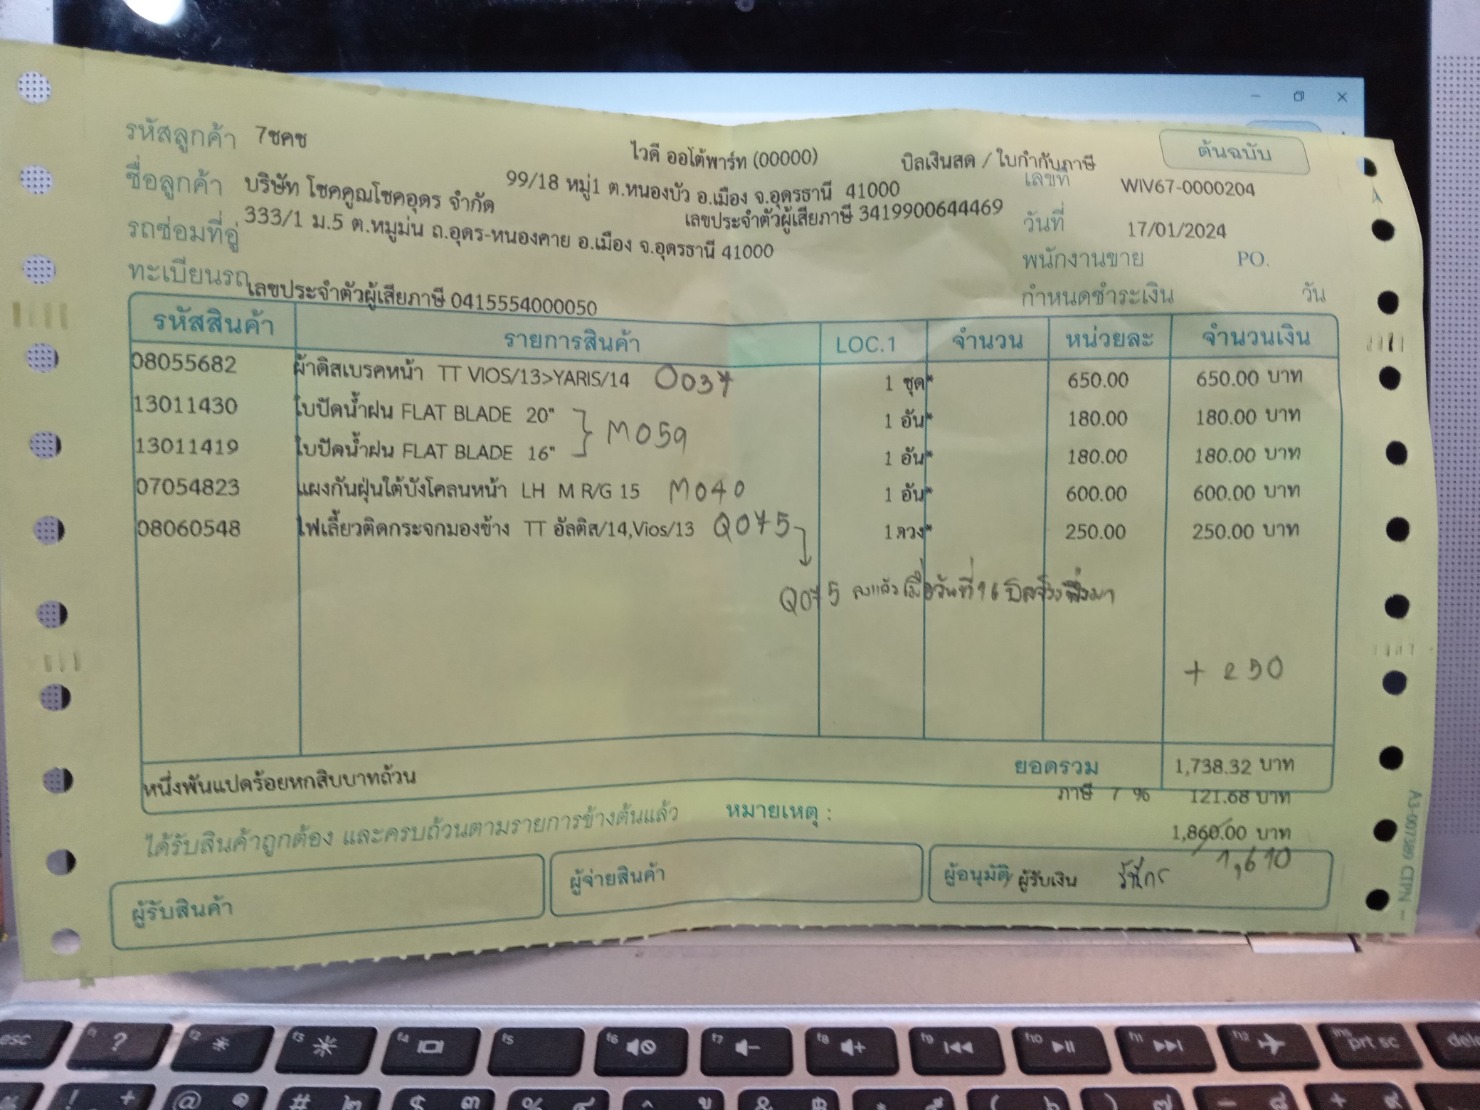 รหัสลูกค้า 7ชคช
ไวดี ออโต้พาร์ท (00000)
บิลเงินสด / ใบกำกับภาษี
ต้นฉบับ
ชื่อลูกค้า บริษัท โชคคูณโชคอุดร จำกัด
99/18 หมู่1 ต.หนองบัว อ.เมือง จ.อุดรธานี 41000
เลขที่ WIV67-0000204
เลขประจำตัวผู้เสียภาษี 3419900644469
รถซ่อมที่อู่ 333/1 ม.5 ต.หมูม่น ถ.อุดร-หนองคาย อ.เมือง จ.อุดรธานี 41000
วันที่ 17/01/2024
พนักงานขาย PO.
ทะเบียนรถ เลขประจำตัวผู้เสียภาษี 0415554000050
กำหนดชำระเงิน วัน
รหัสสินค้า รายการสินค้า LOC.1 จำนวน หน่วยละ จำนวนเงิน
08055682 ผ้าดิสเบรคหน้า TT VIOS/13>YARIS/14 O037 1 ชุด* 650.00 650.00 บาท
13011430 ใบปัดน้ำฝน FLAT BLADE 20" 1 อัน* 180.00 180.00 บาท
M059
13011419 ใบปัดน้ำฝน FLAT BLADE 16" 1 อัน* 180.00 180.00 บาท
07054823 แผงกันฝุ่นใต้บังโคลนหน้า LH M R/G 15 M040 1 อัน* 600.00 600.00 บาท
08060548 ไฟเลี้ยวติดกระจกมองข้าง TT อัลติส/14,Vios/13 Q075 1 ดวง* 250.00 250.00 บาท
Q075 ลงแล้วเมื่อวันที่ 16 บิลจริงพึ่งมา
+ 250
หนึ่งพันแปดร้อยหกสิบบาทถ้วน ยอดรวม 1,738.32 บาท
ภาษี 7 % 121.68 บาท
ได้รับสินค้าถูกต้อง และครบถ้วนตามรายการข้างต้นแล้ว หมายเหตุ :
1,860.00 บาท
1,610
ผู้รับสินค้า
ผู้จ่ายสินค้า
ผู้อนุมัติ/ ผู้รับเงิน
A3-007389 CTPN
esc f1 ? f2 f3 f4 f5 f6 f7 f8 f9 f10 f11 f12 ins prt sc dele